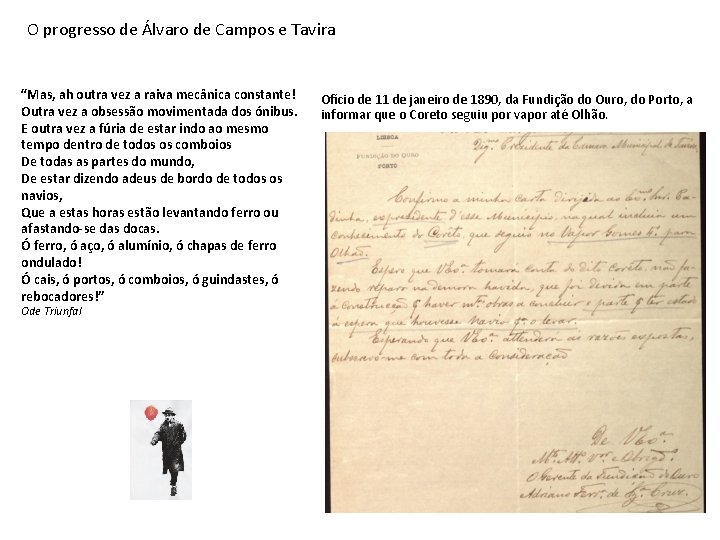 O progresso de Álvaro de Campos e Tavira
“Mas, ah outra vez a raiva mecânica constante!
Outra vez a obsessão movimentada dos ónibus.
E outra vez a fúria de estar indo ao mesmo
tempo dentro de todos os comboios
De todas as partes do mundo,
De estar dizendo adeus de bordo de todos os
navios,
Que a estas horas estão levantando ferro ou
afastando-se das docas.
Ó ferro, ó aço, ó alumínio, ó chapas de ferro
ondulado!
Ó cais, ó portos, ó comboios, ó guindastes, ó
rebocadores!”
Ode Triunfal
Ofício de 11 de janeiro de 1890, da Fundição do Ouro, do Porto, a
informar que o Coreto seguiu por vapor até Olhão.
LISBOA
Dig.mo Presidente da Camara Municipal de Tavira
FUNDIÇÃO DO OURO
PORTO
Confirmo a minha carta dirigida ao Ex.mo Snr. Ca-
dinha, expresidente d'esse Municipio, na qual incluia um
conhecimento do Corêto, que seguio no Vapor Gomes 4º para
Olhão.
Espero que V Ex.a tomará conta do dito corêto, não fa-
zendo reparo na demora havida, que foi devida em parte
á construcção haver m.tas obras a concluir e parte ter estado
á espera que houvesse navio o levar.
Esperando que V Ex.a attenderá as razões expostas,
subscrevo-me com toda a consideração
De V Ex.a
M.to Att.o V.or e Obrig.do
O Gerente da Fundição do Ouro
Adriano de Cruz